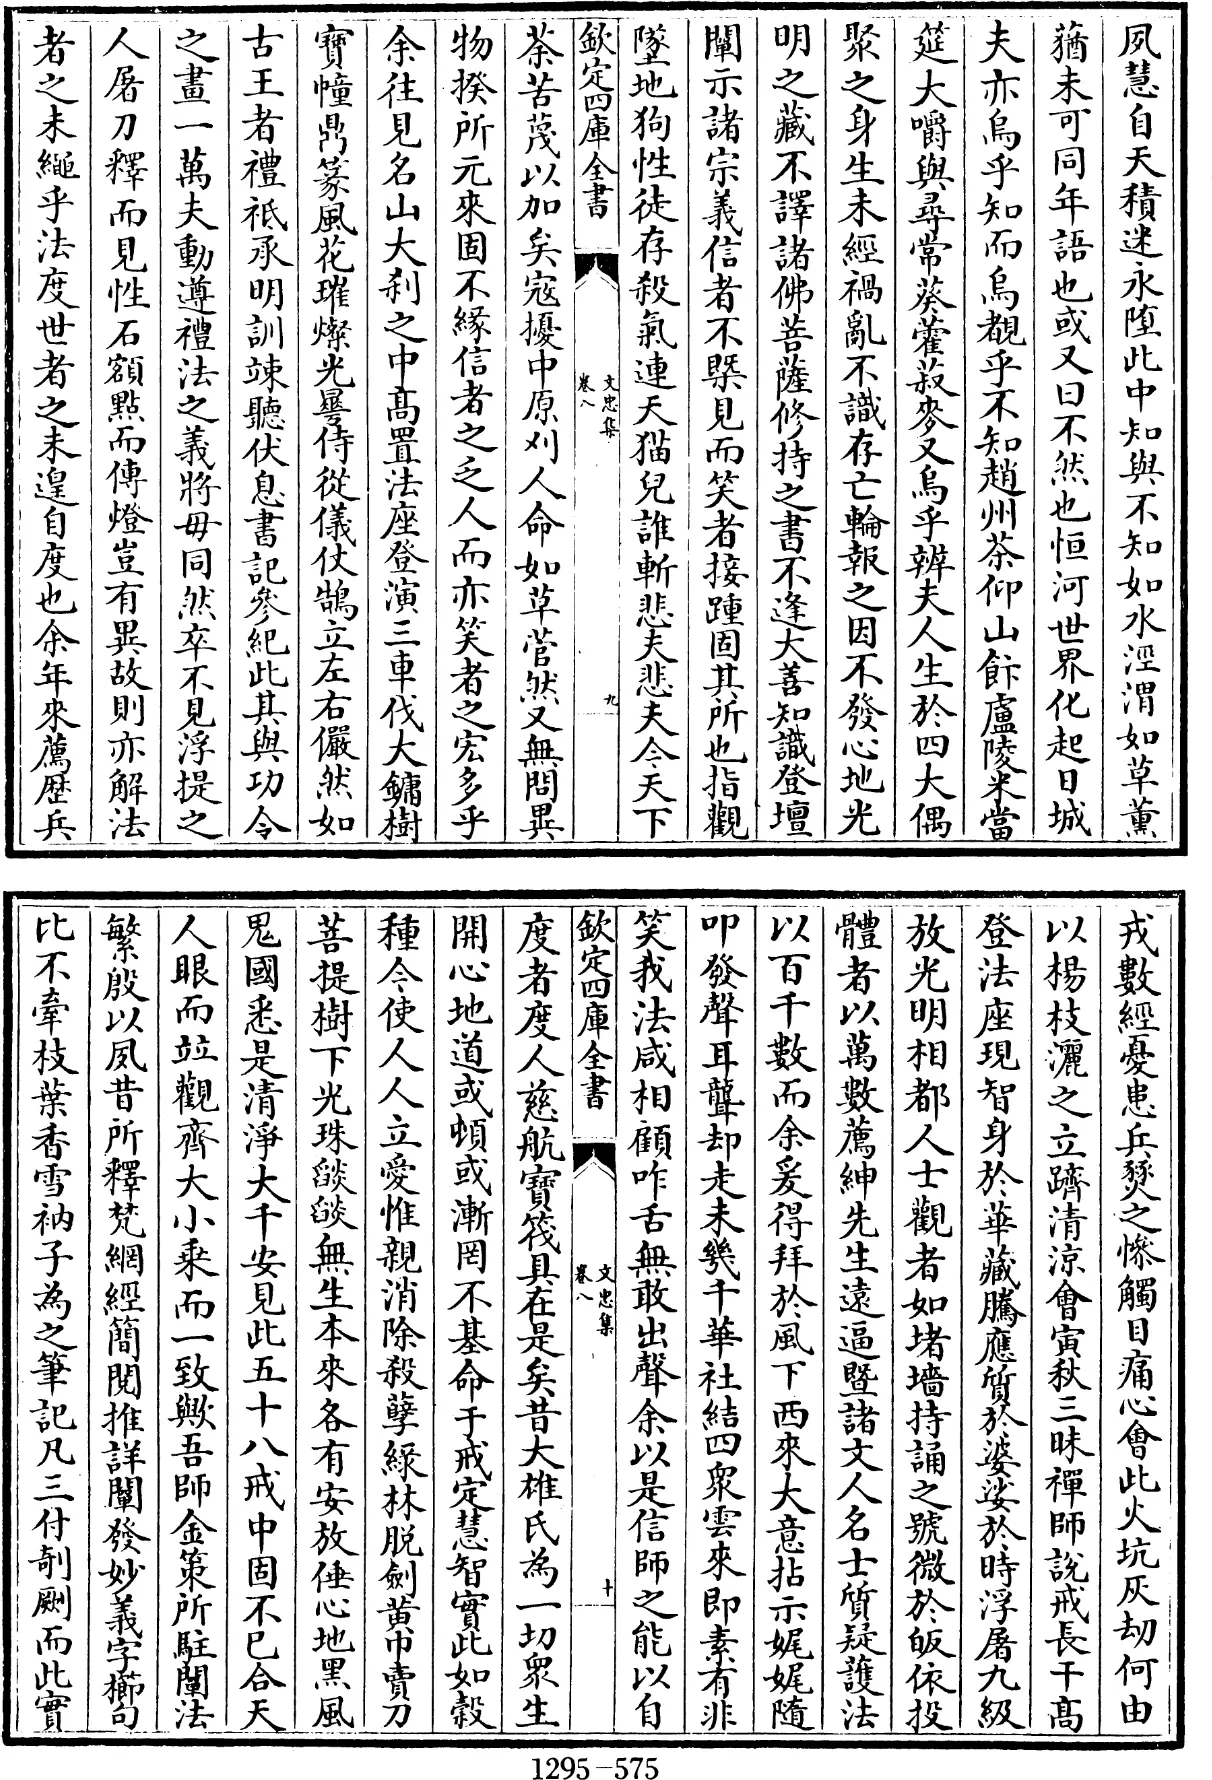 夙慧自天積迷永墮此中知與不知如水涇渭如草薰
蕕未可同年語也或又曰不然也恒河世界化起日城
夫亦烏乎知而烏覩乎不知趙州茶仰山飰盧陵米當
筵大嚼與尋常葵藿菽麥又烏乎辨夫人生於四大偶
聚之身生未經禍亂不識存亡輪報之因不發心地光
明之藏不譯諸佛菩薩修持之書不逢大善知識登壇
闡示諸宗義信者不槩見而笑者接踵固其所也指觀
墜地狗性徒存殺氣連天猫兒誰斬悲夫悲夫今天下
欽定四庫全書
文忠集
卷八
九
荼苦蔑以加矣寇擾中原刈人命如草菅然又無問異
物揆所元來固不緣信者之乏人而亦笑者之宏多乎
余往見名山大刹之中髙置法座登演三車伐大鏞樹
寶幢鼎篆風花璀燦光曇侍從儀仗鵠立左右儼然如
古王者禮祗承明訓竦聽伏息書記參紀此其與功令
之畫一萬夫動遵禮法之義將毋同然卒不見浮提之
人屠刀釋而見性石額點而傳燈豈有異故則亦解法
者之未繩乎法度世者之未遑自度也余年來薦歴兵
戎數經憂患兵燹之慘觸目痛心會此火坑灰刧何由
以楊枝灑之立躋清涼會寅秋三昧禪師說戒長干髙
登法座現智身於華藏騰應質於婆娑於時浮屠九級
放光明相都人士觀者如堵墻持誦之號微於皈依投
體者以萬數薦紳先生遠逼暨諸文人名士質疑護法
以百千數而余爰得拜於風下西來大意拈示娓娓隨
叩發聲耳聾却走未幾千華社結四衆雲來即素有非
笑我法咸相顧咋舌無敢出聲余以是信師之能以自
欽定四庫全書
文忠集
卷八
十
度者度人慈航寶筏具在是矣昔大雄氏為一切衆生
開心地道或頓或漸罔不基命于戒定慧智實此如穀
種今使人人立愛惟親消除殺孽緑林脱劍黄巾賣刀
菩提樹下光珠燄燄無生本來各有安放倕心地黑風
鬼國悉是清淨大千安見此五十八戒中固不已合天
人眼而竝觀齊大小乘而一致歟吾師金策所駐闡法
繁殷以夙昔所釋梵網經簡閲推詳闡發妙義字櫛句
比不牽枝葉香雪衲子為之筆記凡三付剞劂而此實
1295-575